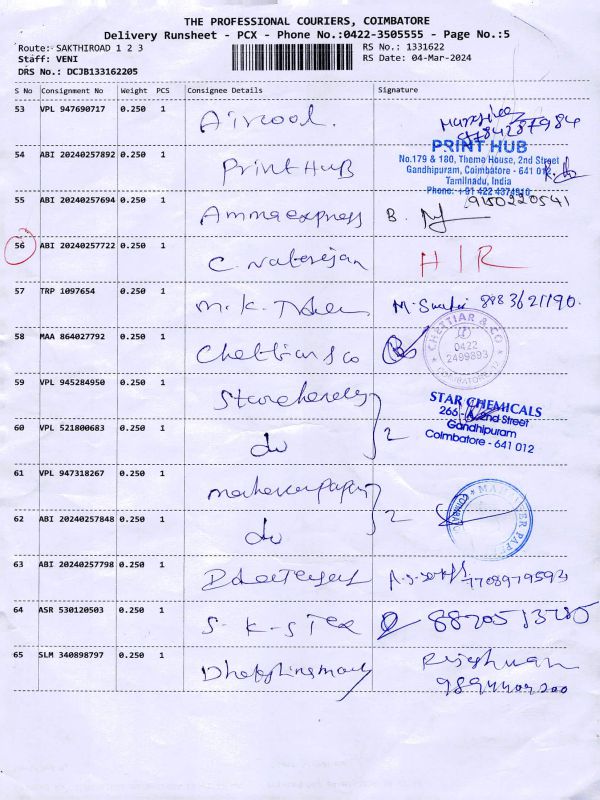 THE PROFESSIONAL COURIERS, COIMBATORE
Delivery Runsheet - PCX - Phone No.:0422-3505555 - Page No.:5
Route: SAKTHIROAD 1 2 3
RS No.: 1331622
Staff: VENI
RS Date: 04-Mar-2024
DRS No.: DCJB133162205
S No Consignment No Weight PCS Consignee Details Signature
53 VPL 947690717 0.250 1 Aircool.
54 ABI 20240257892 0.250 1 Print HUB
PRINT HUB
No.179 & 180, Theme House, 2nd Street
Gandhipuram, Coimbatore - 641 012
Tamilnadu, India
Phone: +91 422 4374910
55 ABI 20240257694 0.250 1 Ammaexpress B. 9150220541
56 ABI 20240257722 0.250 1 C. Natarajan H/R
57 TRP 1097654 0.250 1 M.K.
58 MAA 864027792 0.250 1 Chettiar & co
CHETTIAR & CO
0422
2499893
COIMBATORE
59 VPL 945284950 0.250 1
60 VPL 521800683 0.250 1 do 2
STAR CHEMICALS
266 - 2nd Street
Gandhipuram
Coimbatore - 641 012
61 VPL 947318267 0.250 1
62 ABI 20240257848 0.250 1 do 2
63 ABI 20240257798 0.250 1 7708979593
64 ASR 530120503 0.250 1 S-K-S Tex
65 SLM 340898797 0.250 1